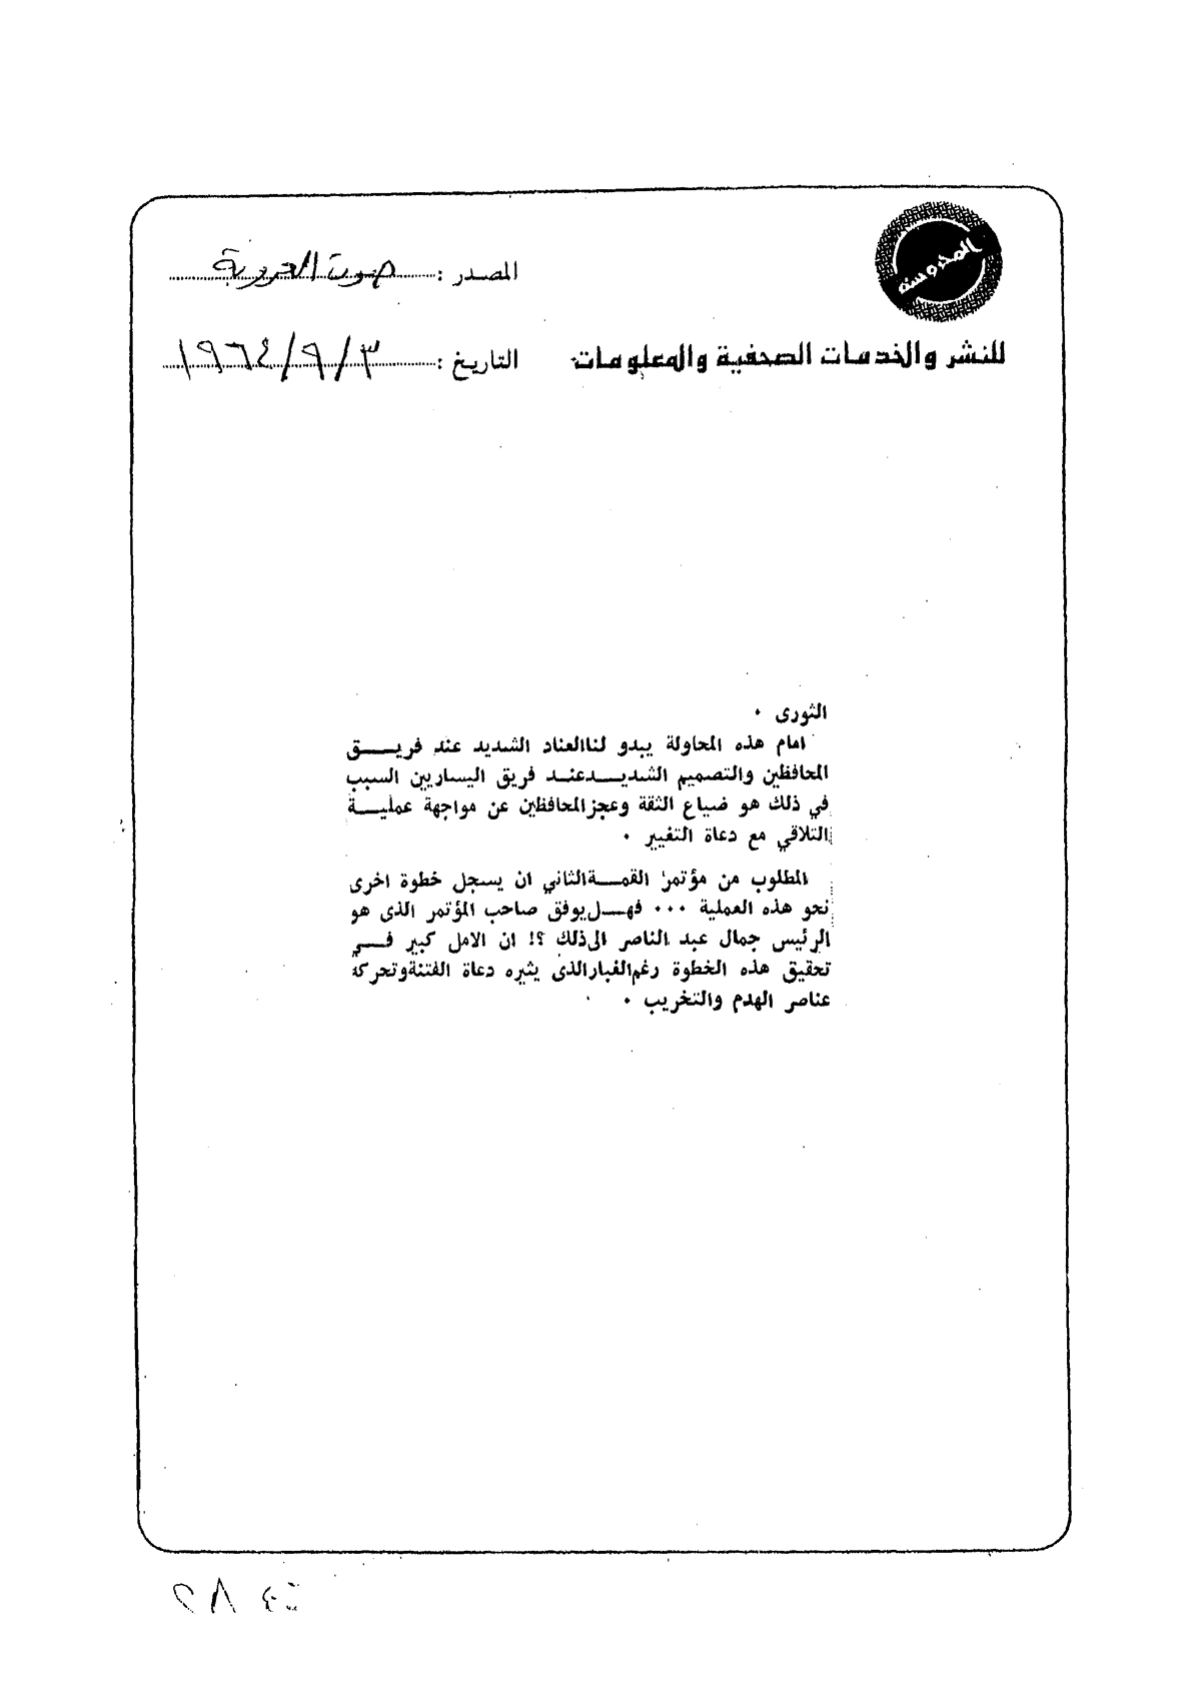 المحروسة
المصدر : صوت العروبة
للنشر والخدمات الصحفية والمعلومات
التاريخ : ١٩٦٤/٩/٣
الثورى .
امام هذه المحاولة يبدو لناالعناد الشديد عند فريـــــق
المحافظين والتصميم الشديـــدعنــد فريق اليساريين السبب
في ذلك هو ضياع الثقة وعجزالمحافظين عن مواجهة عمليـــة
التلاقي مع دعاة التغيير .
المطلوب من مؤتمر القمـــةالثاني ان يسجل خطوة اخرى
نحو هذه العملية ... فهـــل يوفق صاحب المؤتمر الذى هو
الرئيس جمال عبد الناصر الىذلك ؟! ان الامل كبير فـــي
تحقيق هذه الخطوة رغم الغبارالذى يثيره دعاة الفتنةوتحركه
عناصر الهدم والتخريب .